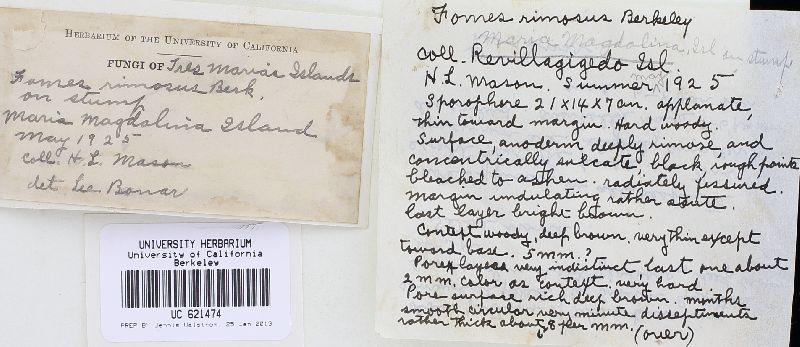 HERBARIUM OF THE UNIVERSITY OF CALIFORNIA
FUNGI OF Tres Marias Islands
Fomes rimosus Berk.
on stump
Maria Magdalina Island
May 1925
coll. H. L. Mason
det Lee Bonar
UNIVERSITY HERBARIUM
University of California
Berkeley
UC 621474
PREP BY Jennie Wahlstrom, 25 Jan 2013
Fomes rimosus Berkeley
Maria Magdalina Isl on stump
Coll. Revillagigedo Isl
May
H. L. Mason. Summer 1925
Sporophore 21 x 14 x 7 cm. applanate,
thin toward margin. Hard woody.
Surface, anoderm deeply rimose and
concentrically sulcate, black, rough points
bleached to ashen. radiately fissured.
Margin undulating rather acute.
last layer bright brown.
Context woody, deep brown. very thin except
toward base. 5 mm.?
Pore layers very indistinct, last one about
2 mm. color as context. very hard.
Pore surface rich deep brown. mouths
smooth circular very minute dissepiments
rather thick about 8 per mm.
(over)